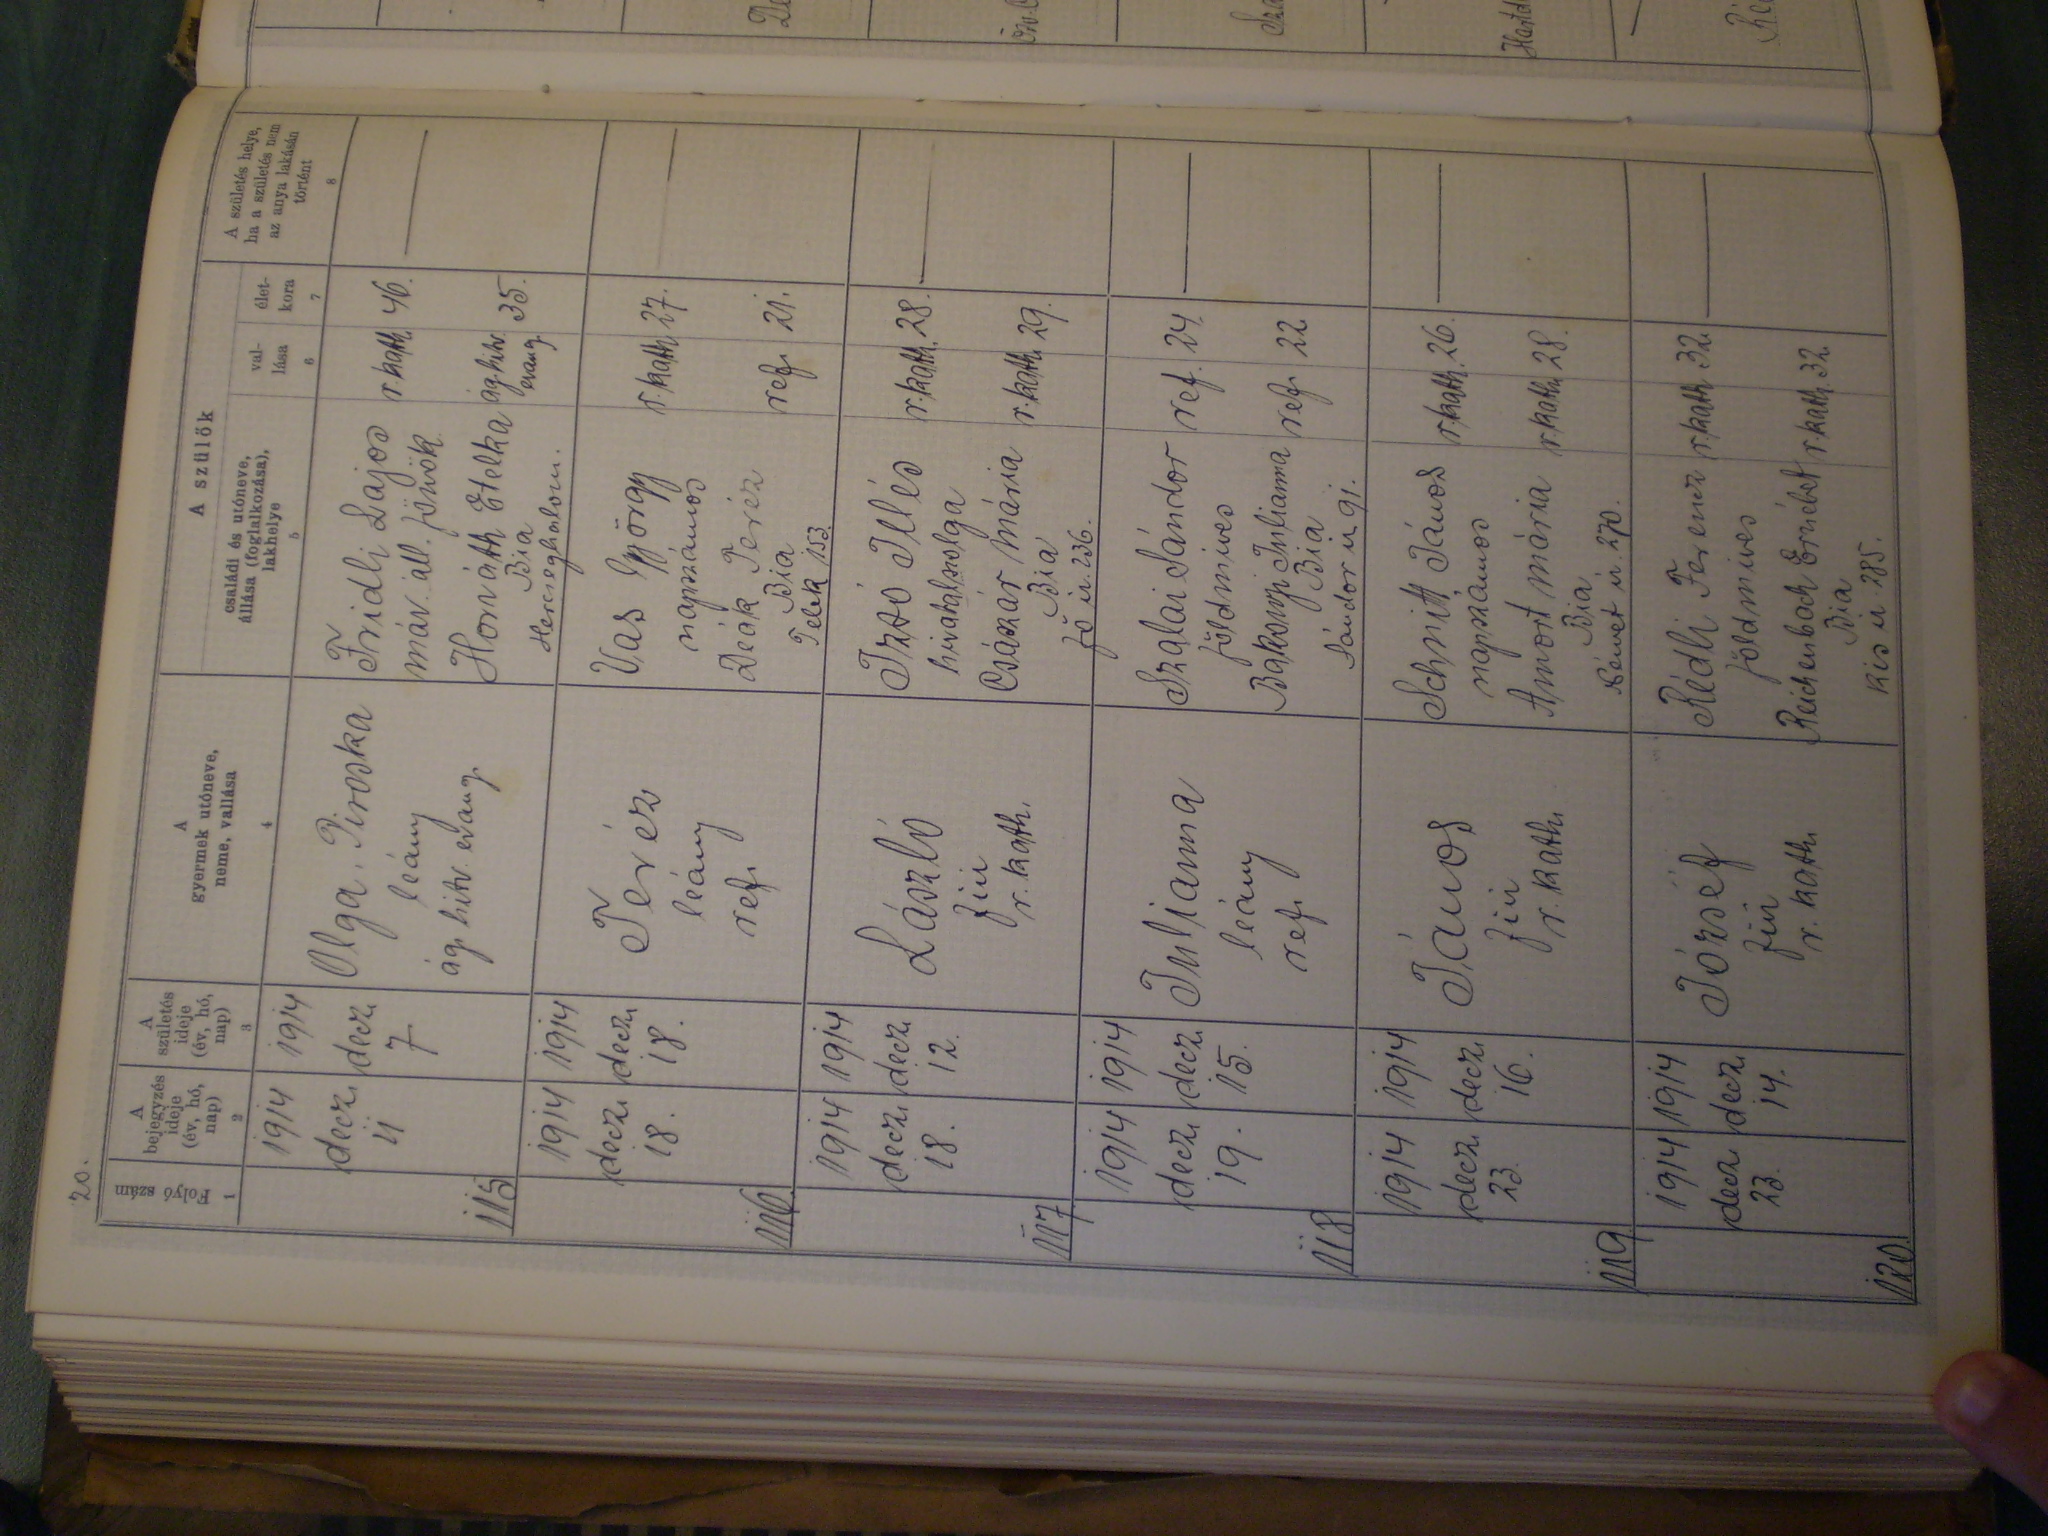 20.
Folyó szám
A bejegyzés ideje (év, hó, nap)
A születés ideje (év, hó, nap)
A gyermek utóneve, neme, vallása
A szülők
családi és utóneve, állása (foglalkozása), lakhelye
vallása
életkora
A születés helye, ha a születés nem az anya lakásán történt
1 2 3 4 5 6 7 8
115
1914 decz. 11
1914 decz. 7
Olga, Piroska
leány
ág. hitv. evang.
Fridli Lajos r. kath. 46.
máv. áll. főnök
Horváth Etelka ág. hitv. evang. 35.
Bia
Herceghalom.
116.
1914 decz. 18.
1914 decz. 18.
Teréz
leány
ref.
Vas György r. kath. 27.
napszámos
Deák Teréz ref. 21.
Bia
Telek 153.
117.
1914 decz. 18.
1914 decz. 12.
László
fiú
r. kath.
Izsó Illés r. kath. 28.
hivatalszolga
Császár Mária r. kath. 29.
Bia
Fő u. 236.
118
1914 decz. 19.
1914 decz. 15.
Julianna
leány
ref.
Szalai Sándor ref. 24.
földmives
Bakonyi Julianna ref. 22.
Bia
Sándor u. 91.
119
1914 decz. 23.
1914 decz. 16.
János
fiú
r. kath.
Schmitt János r. kath. 26.
napszámos
Amort Mária r. kath. 28.
Bia
Német u. 270.
120.
1914 decz. 23.
1914 decz. 14.
József
fiú
r. kath.
Rédli Ferencz r. kath. 32.
földmives
Reichenbach Erzsébet r. kath. 32.
Bia
Kis u. 285.